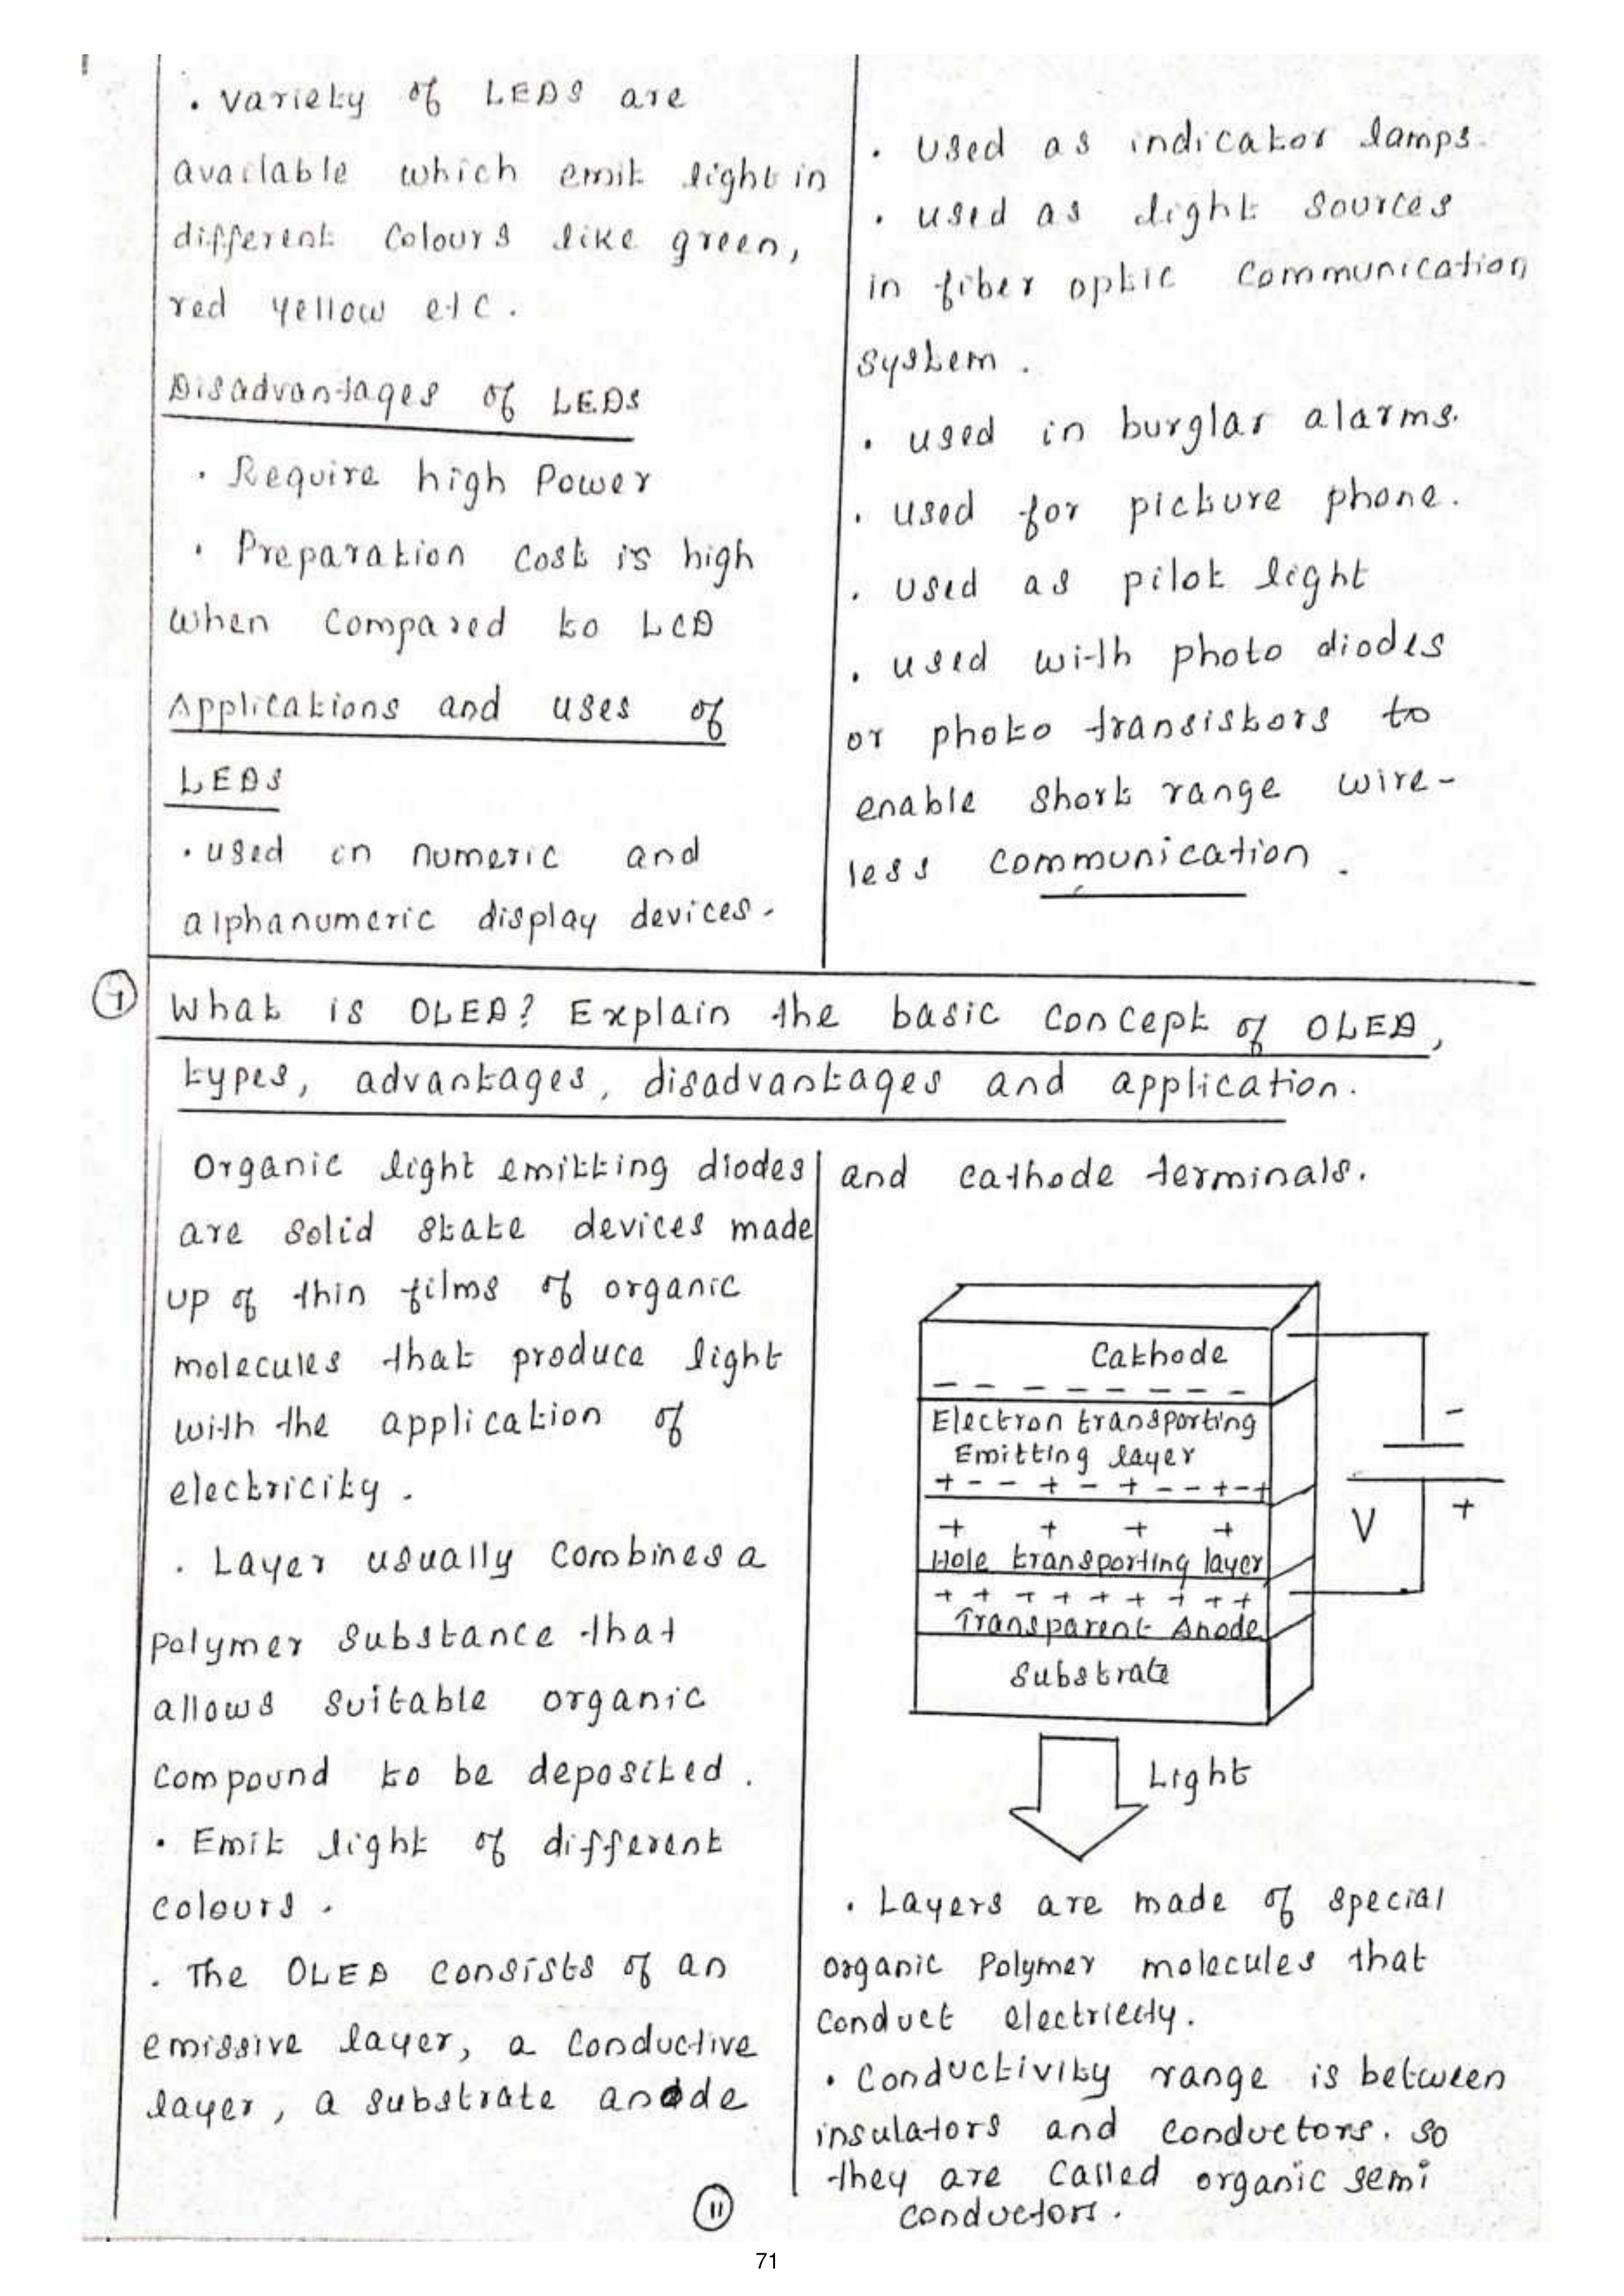 . Variety of LEDS are
available which emit light in
different colours like green,
red yellow etc.
Disadvantages of LEDS
. Require high Power
. Preparation cost is high
when compared to LCD
Applications and uses of
LEDS
. used in numeric and
alphanumeric display devices.
. used as indicator lamps.
. used as light sources
in fiber optic communication
system.
. used in burglar alarms.
. used for picture phone.
. used as pilot light
. used with photo diodes
or photo transistors to
enable short range wire-
less communication.
7
What is OLED? Explain the basic concept of OLED,
types, advantages, disadvantages and application.
Organic light emitting diodes
are solid state devices made
up of thin films of organic
molecules that produce light
with the application of
electricity.
. Layer usually combines a
polymer substance that
allows suitable organic
compound to be deposited.
. Emit light of different
colours.
. The OLED consists of an
emissive layer, a conductive
layer, a substrate anode
and cathode terminals.
Cathode
- - - - - - - -
Electron transporting
Emitting layer
+ - - + - + - - + - +
+ + + +
Hole transporting layer
+ + + + + + + + +
Transparent Anode
Substrate
-
V
+
Light
. Layers are made of special
organic Polymer molecules that
conduct electricity.
. Conductivity range is between
insulators and conductors. so
they are called organic semi
conductors.
11
71